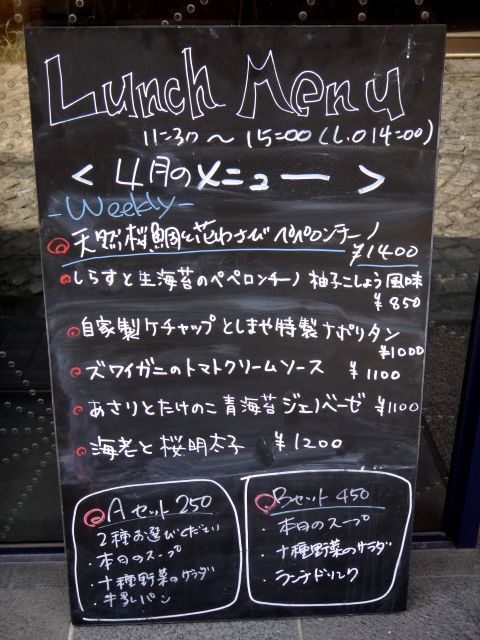 Lunch Menu
11:30～15:00(L.O14:00)
<4月のメニュー>
-Weekly-
天然桜鯛と花わさびペペロンチーノ
¥1400
しらすと生海苔のペペロンチーノ 柚子こしょう風味
¥850
自家製ケチャップとしまや特製ナポリタン
¥1000
ズワイガニのトマトクリームソース ¥1100
あさりとたけのこ青海苔ジェノベーゼ ¥1100
海老と桜明太子 ¥1200
Aセット 250
2種お選びください
・本日のスープ
・十種野菜のサラダ
・牛乳パン
Bセット 450
・本日のスープ
・十種野菜のサラダ
・ランチドリンク